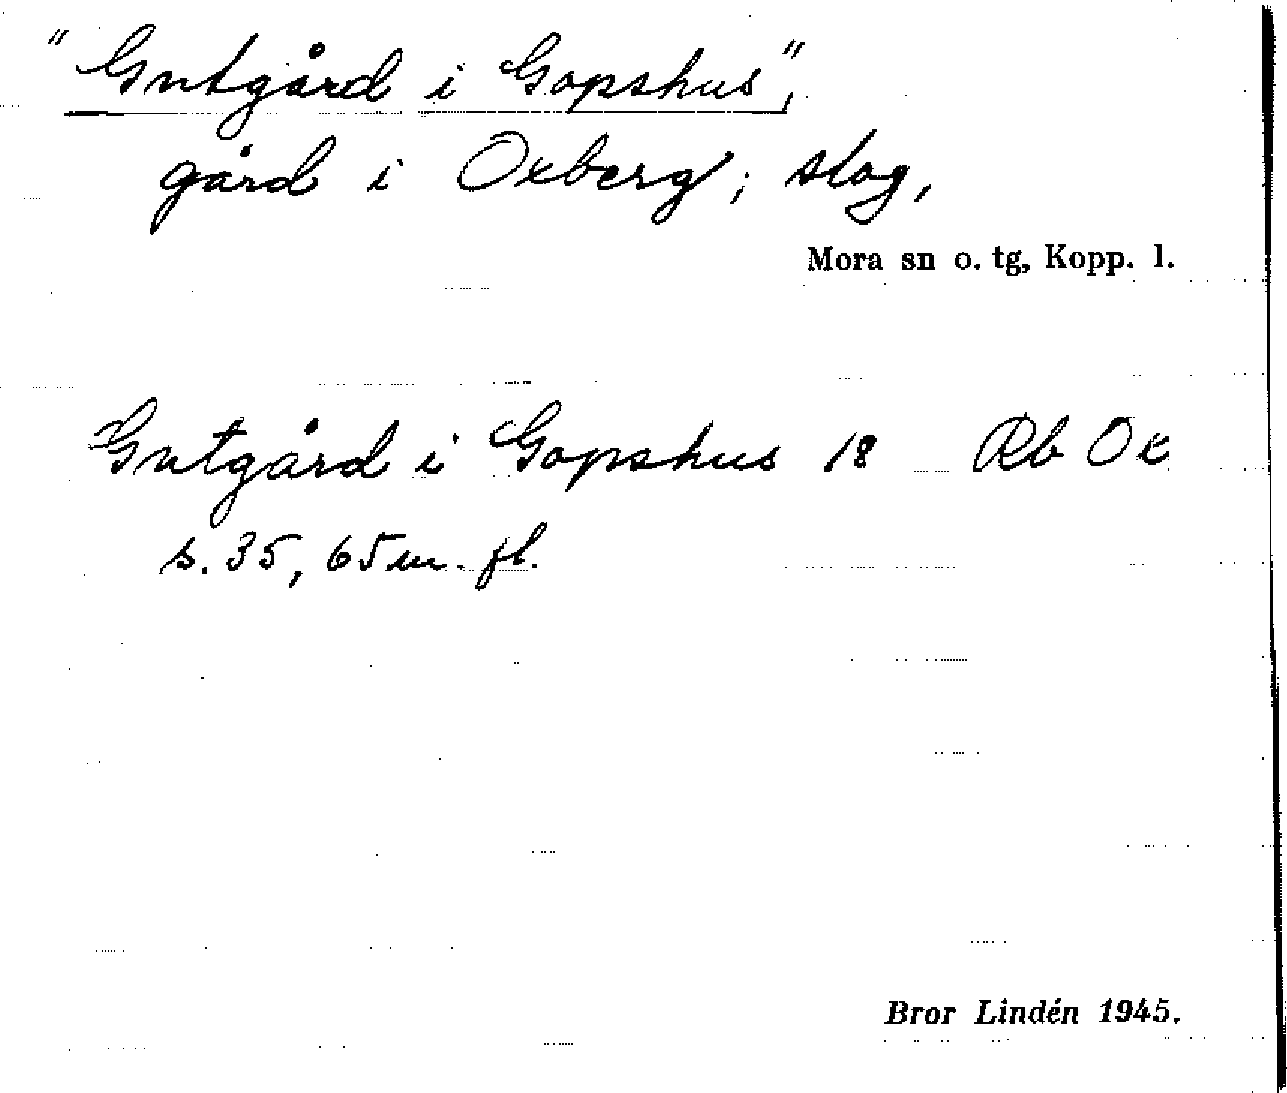 "Gutgård i Gopshus",
gård i Oxberg; slog,
Mora sn o. tg, Kopp. l.
Gutgård i Gopshus 18 Rb Ox
s. 35, 65 m. fl.
Bror Lindén 1945.